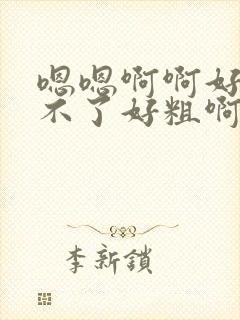 嗯嗯啊啊好
不了好粗啊
李新鎖